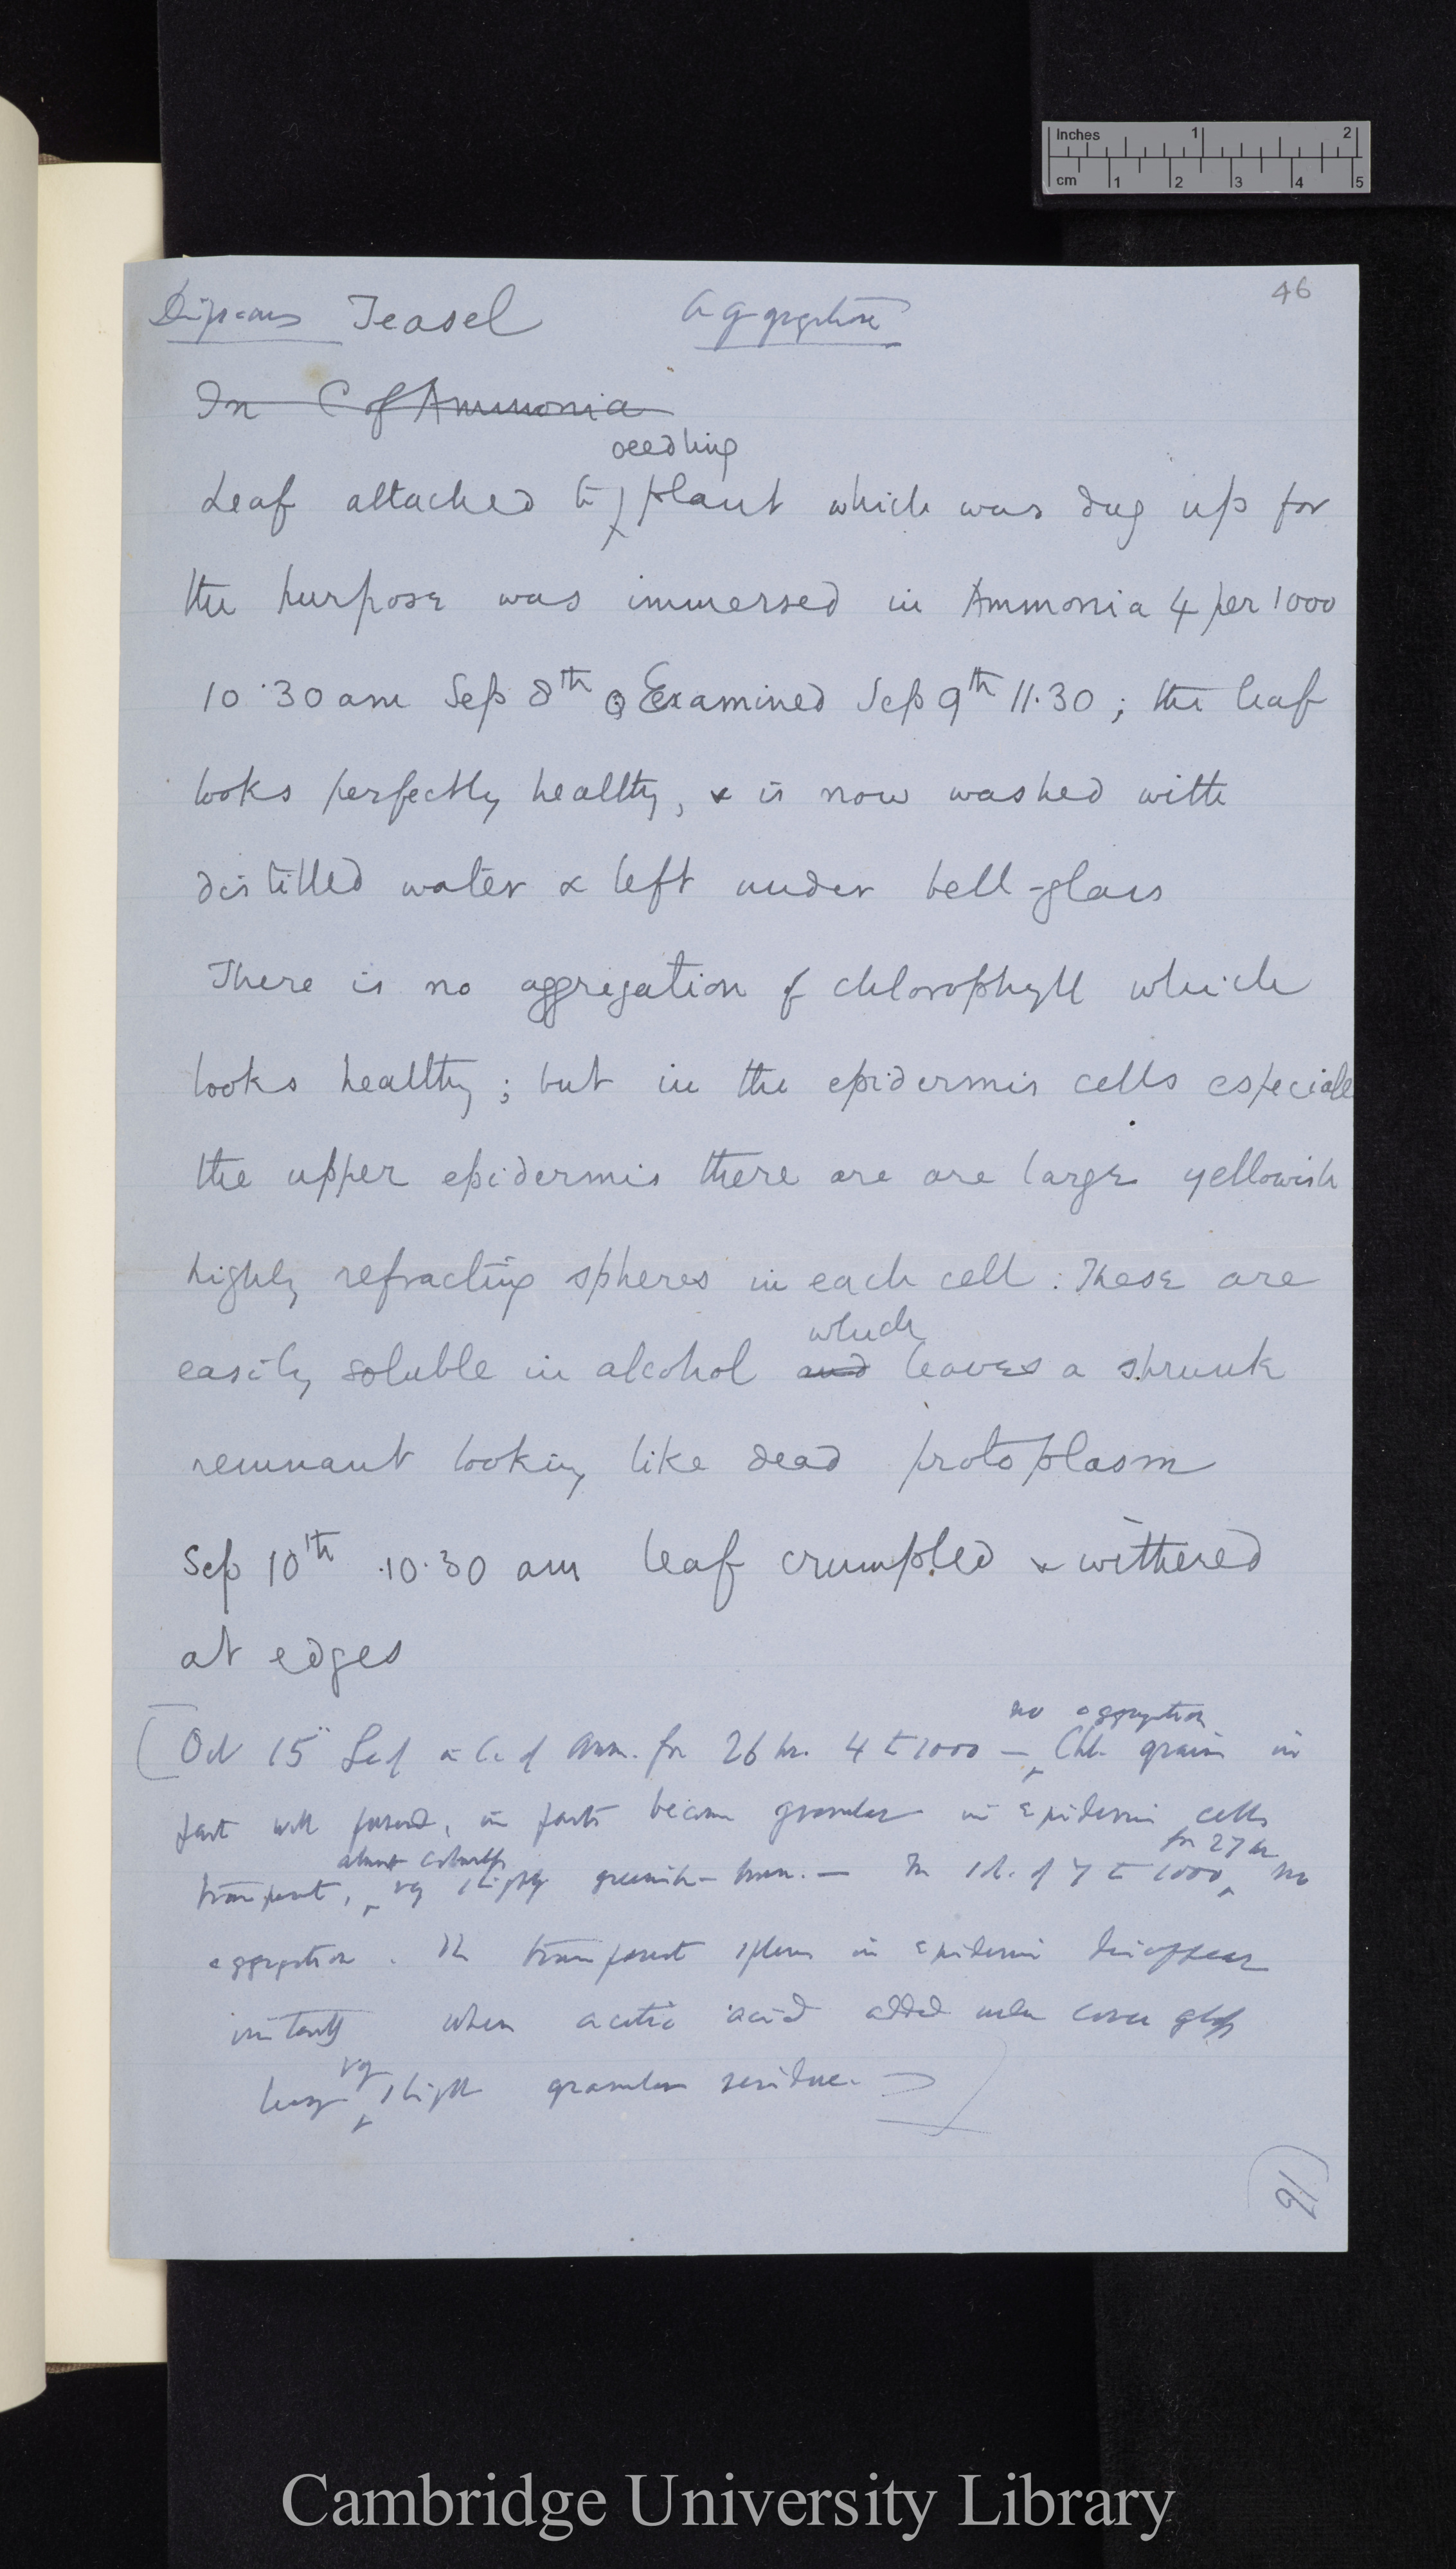 Inches 1 2
cm 1 2 3 4 5
46
Dipsacus Teasel Aggregation
In C of Ammonia
seedling
Leaf attached to plant which was dug up for
the purpose was immersed in Ammonia 4 per 1000
10.30 am Sep 8th Examined Sep 9th 11.30; the leaf
looks perfectly healthy, & is now washed with
distilled water & left under bell-glass
There is no aggregation of chlorophyll which
looks healthy; but in the epidermis cells especiall
the upper epidermis there are are large yellowish
highly refracting spheres in each cell. These are
which
easily soluble in alcohol and leaves a shrunk
remnant looking like dead protoplasm
Sep 10th 10.30 am leaf crumpled & withered
at edges
no aggregation
[Oct 15" Leaf in C. of Amm. for 26 hr. 4 to 1000 — Chl. grains in
part well, in parts become granular in Epidermis cells
for 27 hr
transparent, very slightly greenish-brown. — In sol. of 7 to 1000 no
aggregation. The transparent spheres in Epidermis disappear
instantly when acetic acid added under cover glass
very
leaving slight granular residue. —]
16
Cambridge University Library